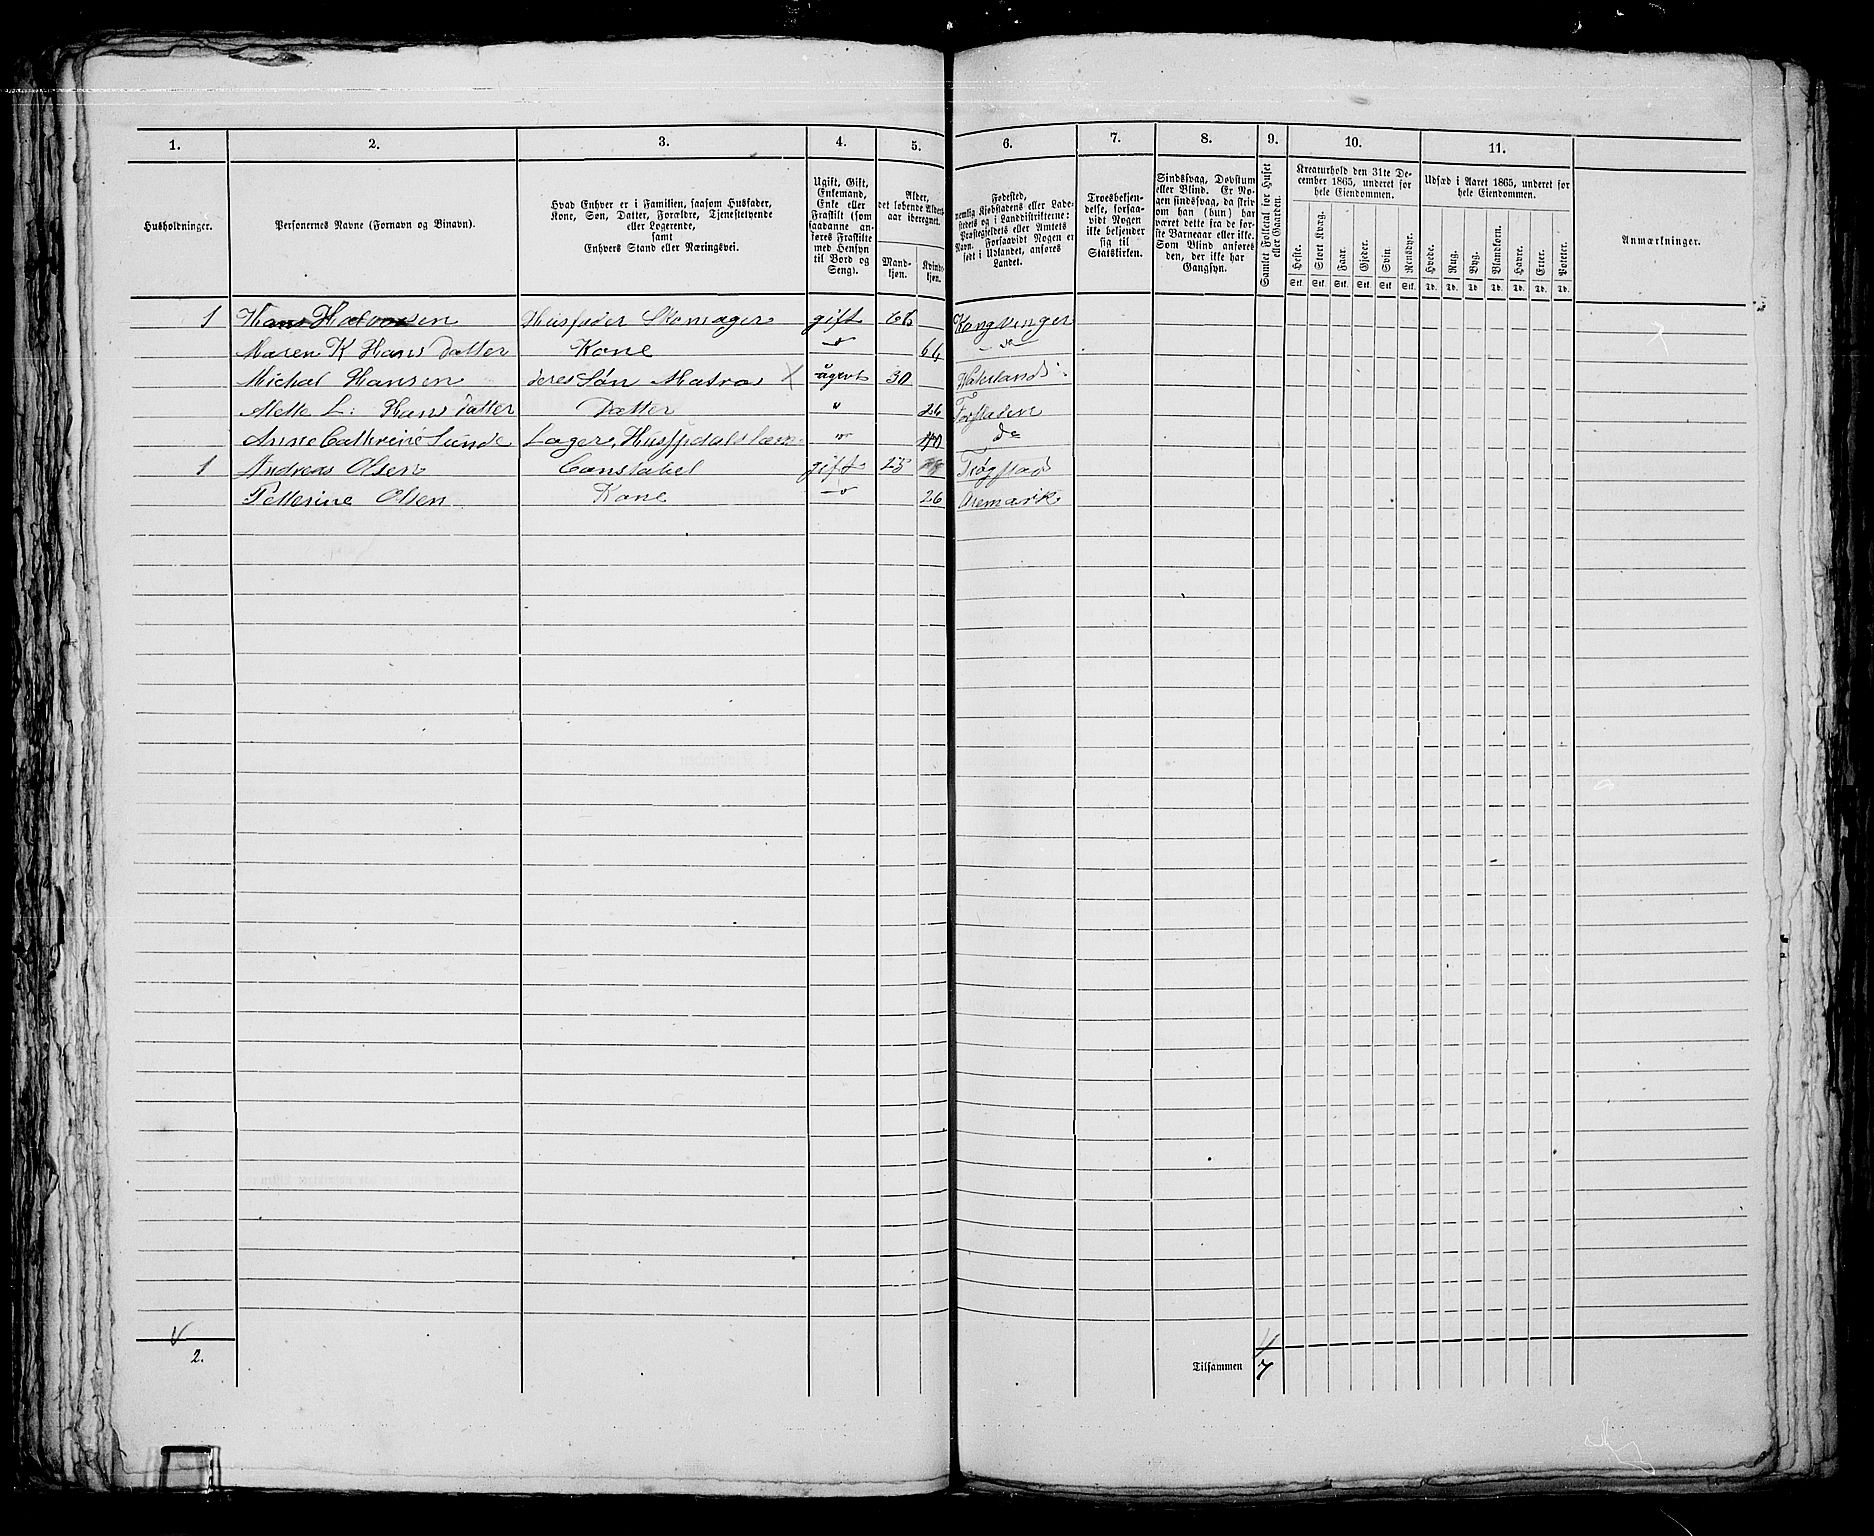 1. 2. 3. 4. 5. 6. 7. 8. 9. 10. 11.
Husholdninger.
Personernes Navne (Fornavn og Binavn).
Hvad Enhver er i Familien, saasom Husfader,
Kone, Søn, Datter, Forældre, Tjenestetyende
eller Logerende,
samt
Enhvers Stand eller Næringsvei.
Ugift, Gift,
Enkemand,
Enke eller
Fraskilt (som
saadanne an-
føres Fraskilte
med Hensyn
til Bord og
Seng).
Alder,
det løbende Alders-
aar iberegnet.
Mand-
kjøn.
Kvind-
kjøn.
Fødested,
nemlig Kjøbstadens eller Lade-
stedets og i Landdistrikterne:
Præstegjeldets eller Amtets
Navn. Forsaavidt Nogen er
født i Udlandet, anføres
Landet.
Troesbekjen-
delse, forsaa-
vidt Nogen
ikke bekjender
sig til
Statskirken.
Sindssvag, Døvstum
eller Blind. Er No-
gen sindssvag, da skriv
om han (hun) har
været dette fra de før-
ste Barneaar eller ikke.
Som Blind anføres
den, der ikke har
Gangsyn.
Samlet Folketal for Huset
eller Gaarden.
Kreaturhold den 31te De-
cember 1865, underet for
hele Eiendommen.
Heste. Stort Kvæg. Faar. Gjeder. Svin. Rensdyr.
Stk. Stk. Stk. Stk. Stk. Stk.
Udsæd i Aaret 1865, underet for
hele Eiendommen.
Hvede. Rug. Byg. Blandkorn. Havre. Erter. Poteter.
Td. Td. Td. Td. Td. Td. Td.
Anmærkninger.
1 Hans Halvorsen Husfader Skomager gift 66 Kongsvinger
Maren K Hans Datter Kone 64
Michal Hansen deres Søn Matros X ugivt 30
Mette L: Hans Datter Datter " 26
Anne Cathrine Lunde " 40 do
1 Andreas Olsen Constabel gift 25 Trøgstad
Petterine Olsen Kone 26 Aremark
2.
Tilsammen 7